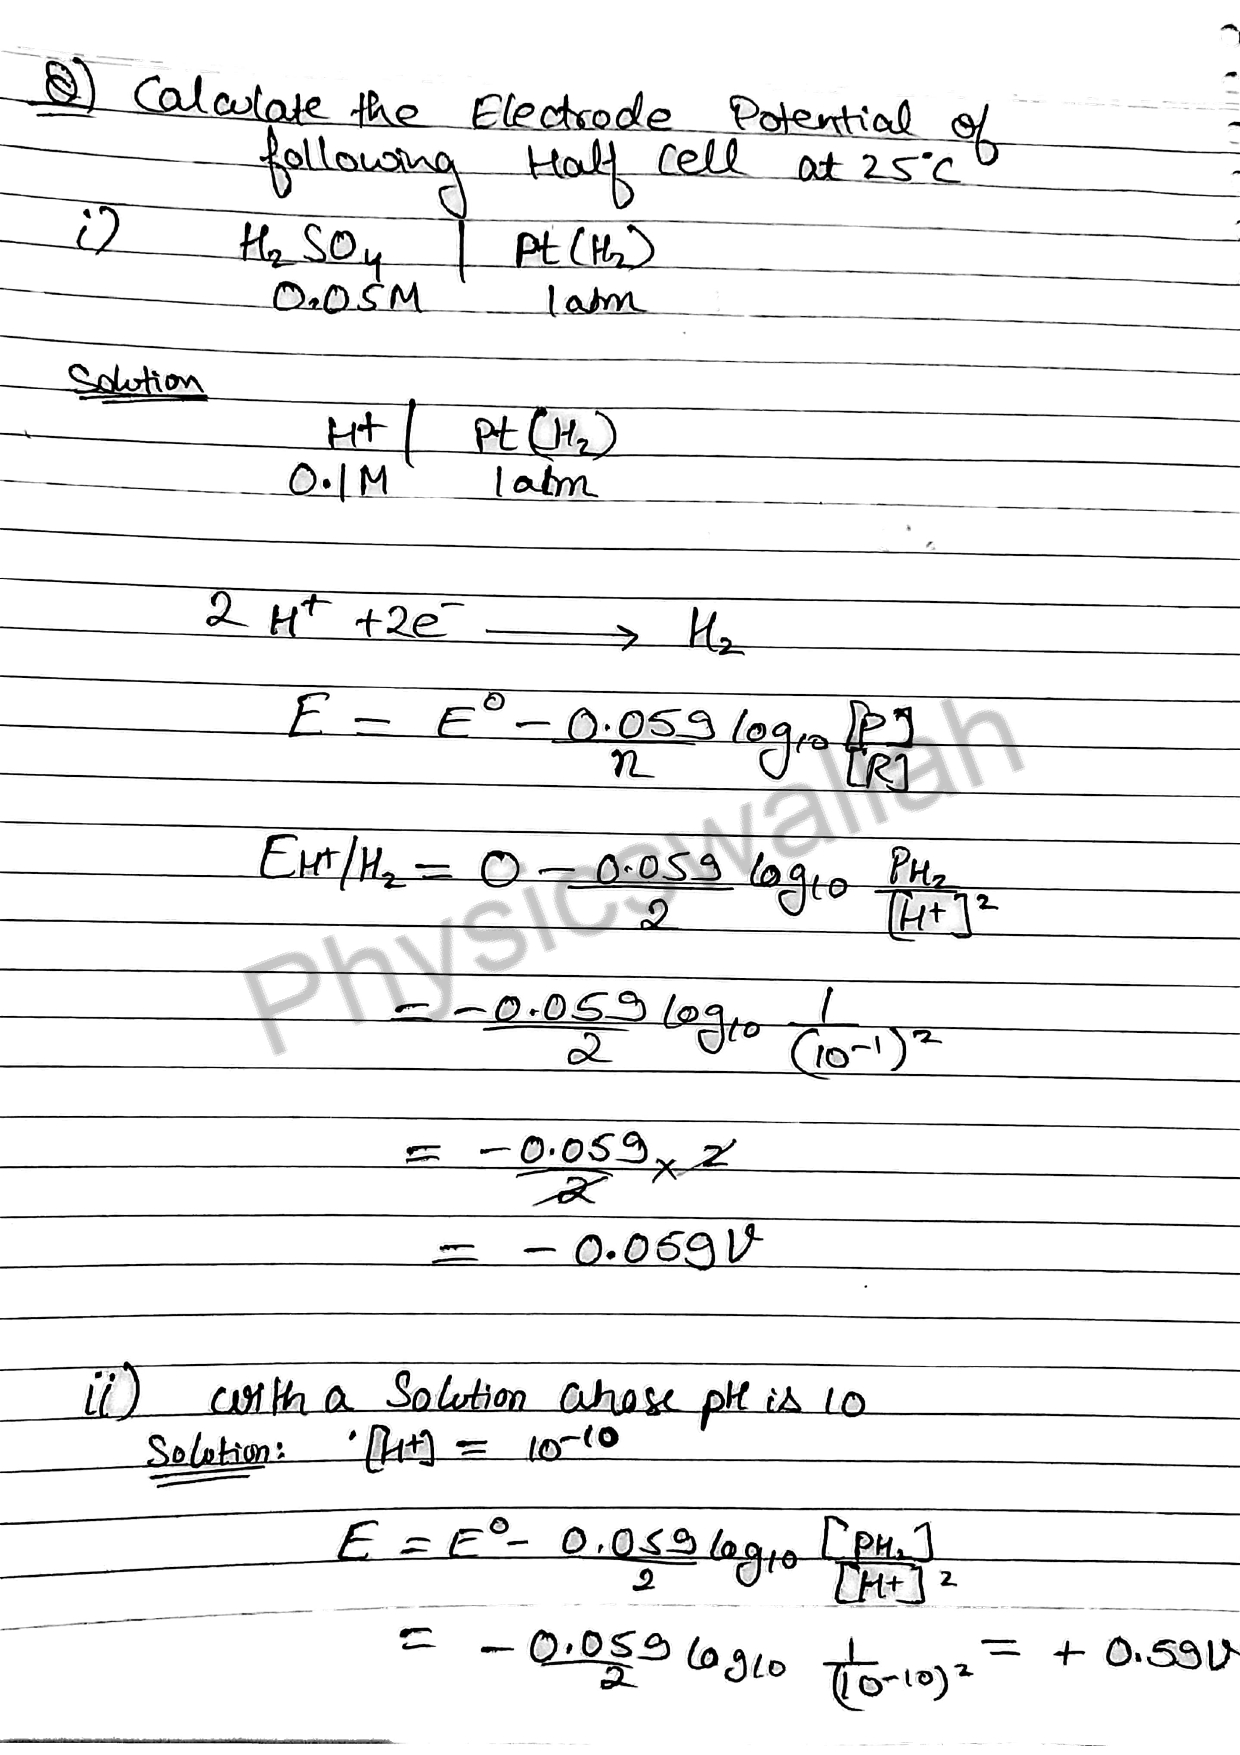 Q) Calculate the Electrode Potential of
following Half cell at 25°C
i) H₂SO₄ | Pt(H₂)
0.05M 1atm
Solution
H+ | Pt(H₂)
0.1M 1atm
2 H⁺ + 2e⁻ ⟶ H₂
E = E⁰ - 0.059/n log₁₀ [P]/[R]
E H+/H₂ = 0 - 0.059/2 log₁₀ PH₂/[H+]²
= -0.059/2 log₁₀ 1/(10⁻¹)²
= -0.059/2 × 2
= -0.059V
ii) with a Solution whose pH is 10
Solution: [H+] = 10⁻¹⁰
E = E⁰ - 0.059/2 log₁₀ [PH₂]/[H+]²
= -0.059/2 log₁₀ 1/(10⁻¹⁰)² = + 0.59V
Physicswallah